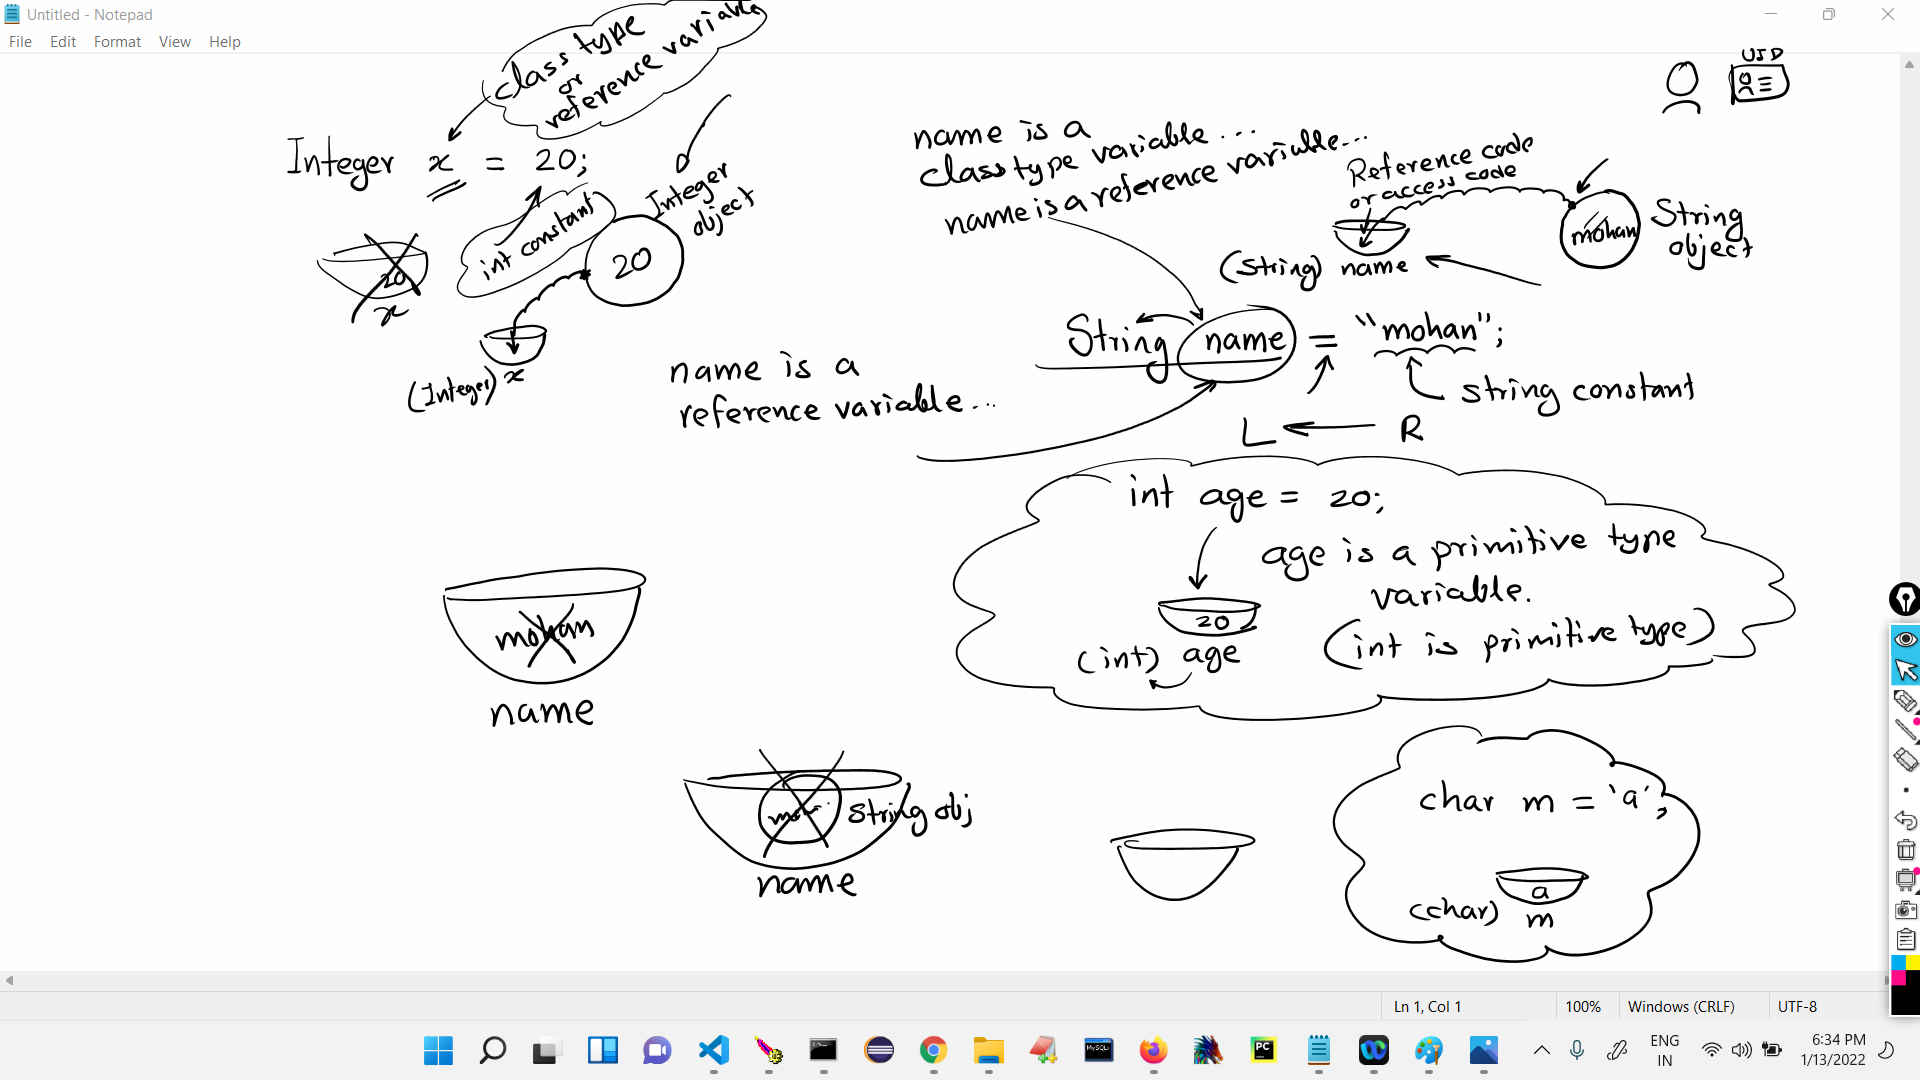 Untitled - Notepad
File Edit Format View Help
class type
or
reference variable
Integer x = 20;
int constant
Integer
object
20
20
x
(Integer) x
UID
name is a
class type variable ...
name is a reference variable...
Reference code
or access code
mohan
String
object
(string) name
String name = "mohan";
string constant
L ← R
name is a
reference variable...
int age = 20;
age is a primitive type
variable.
20
(int) age
(int is primitive type)
mohan
name
String obj
name
char m = 'a';
a
(char) m
Ln 1, Col 1
100%
Windows (CRLF)
UTF-8
PC
MySQL
ENG
IN
6:34 PM
1/13/2022